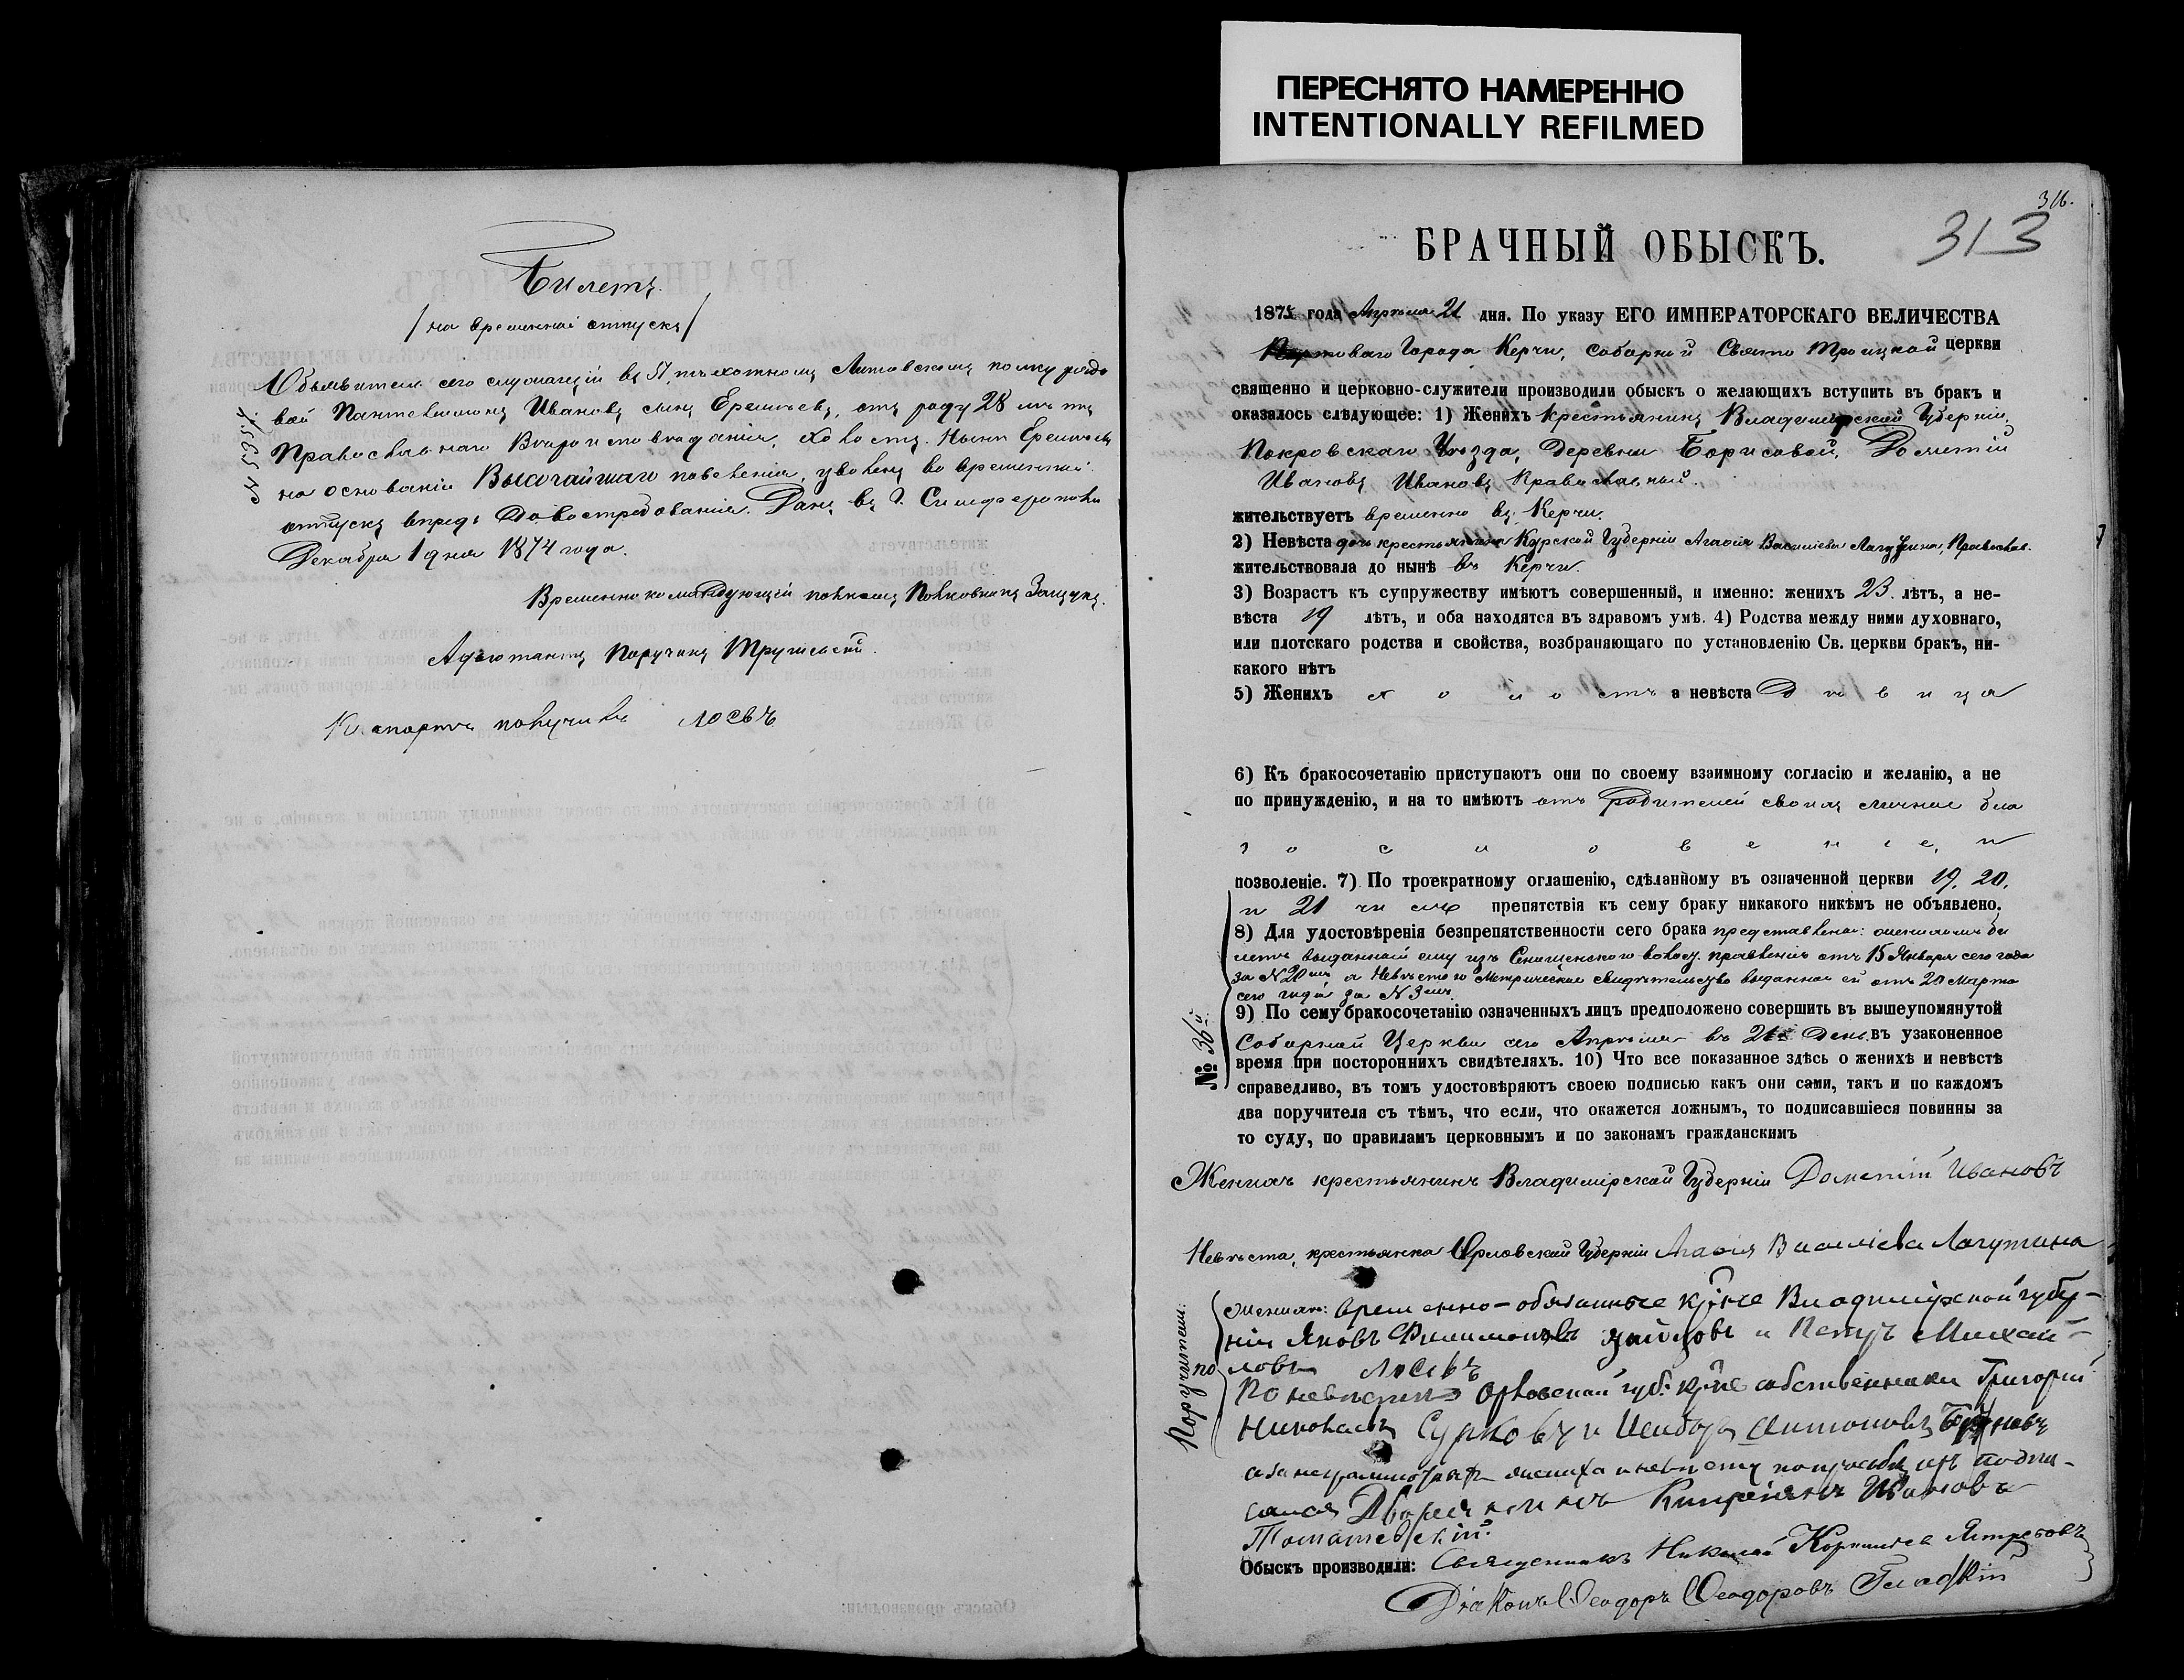 ПЕРЕСНЯТО НАМЕРЕННО
INTENTIONALLY REFILMED
Билетъ
/на временный отпускъ/
Объявитель сего служащій въ 51, пѣхотномъ Литовскомъ полку рядо
вой Пантелимонъ Ивановъ сынъ Еремѣевъ, отъ роду 28 лѣтъ
Православнаго Вѣроисповѣданія, холостъ. Нынѣ Еремѣевъ
на основаніи Высочайшаго повеленія, уволенъ во временный
отпускъ впредь до востребованія. Данъ въ г. Симферополѣ
Декабря 1 дня 1874 года.
№ 5635.
Временно командующій полкомъ Полковникъ
Адъютантъ Поручикъ
получилъ Лосевъ
316.
313
БРАЧНЫЙ ОБЫСКЪ.
1875 года Апрѣля 21 дня. По указу ЕГО ИМПЕРАТОРСКАГО ВЕЛИЧЕСТВА
Портоваго Города Керчи, Соборной Свято Троицкой церкви
священно и церковно-служители производили обыскъ о желающихъ вступить въ бракъ и
оказалось слѣдующее: 1) Женихъ Крестьянинъ Владимірской Губерніи,
Покровскаго Уѣзда, Деревни Борисовой, Дометій
Ивановъ Ивановъ Православный.
жительствуетъ временно въ Керчи.
2) Невѣста дочь крестьянина Курской Губерніи Агафія Васильева Лагутина, Православ.
жительствовала до нынѣ въ Керчи.
3) Возрастъ къ супружеству имѣютъ совершенный, и именно: женихъ 23 лѣтъ, а не-
вѣста 19 лѣтъ, и оба находятся въ здравомъ умѣ. 4) Родства между ними духовнаго,
или плотскаго родства и свойства, возбраняющаго по установленію Св. церкви бракъ, ни-
какого нѣтъ
5) Женихъ холостъ а невѣста Дѣвица
6) Къ бракосочетанію приступаютъ они по своему взаимному согласію и желанію, а не
по принужденію, и на то имѣютъ отъ Родителей своихъ личное бла
гословеніе, и
позволеніе. 7) По троекратному оглашенію, сдѣланному въ означенной церкви 19. 20.
и 21 числа препятствія къ сему браку никакого никѣмъ не объявлено.
8) Для удостовѣренія безпрепятственности сего брака представлены: женихомъ би
летъ выданный ему изъ волос. правленія отъ 15 Января сего года
за № 20мъ а Невѣстою Метрическое свидѣтельство выданное ей отъ 20 Марта
сего года за № 3мъ.
9) По сему бракосочетанію означенныхъ лицъ предположено совершить въ вышеупомянутой
Соборной Церкви сего Апрѣля въ 21й День въ узаконенное
время при постороннихъ свидѣтеляхъ. 10) Что все показанное здѣсь о женихѣ и невѣстѣ
справедливо, въ томъ удостовѣряютъ своею подписью какъ они сами, такъ и по каждомъ
два поручителя съ тѣмъ, что если, что окажется ложнымъ, то подписавшіеся повинны за
то суду, по правиламъ церковнымъ и по законамъ гражданскимъ
№ 36й
Женихъ крестьянинъ Владимірской Губерніи Дометій Ивановъ
Невѣста, крестьянка Орловской Губерніи Агафія Василіева Лагутина
Поручители: по
женихѣ: временно-обязанные кр-не Владимірской губер-
ніи Яковъ Филимоновъ и Петръ Михай-
ловъ Лосевъ
По невѣстѣ Орловской губ. кр-не собственники Григорій
Николаевъ Сурковъ и Исидоръ Антоновъ
а за неграмотныхъ жениха и невѣсту по просьбѣ ихъ подпи-
сался Дворянинъ Кипріянъ Ивановъ
Обыскъ производили: Священникъ Николай Корниліевъ Ястребовъ
Діаконъ Ѳеодоръ Ѳеодоровъ Гладкій